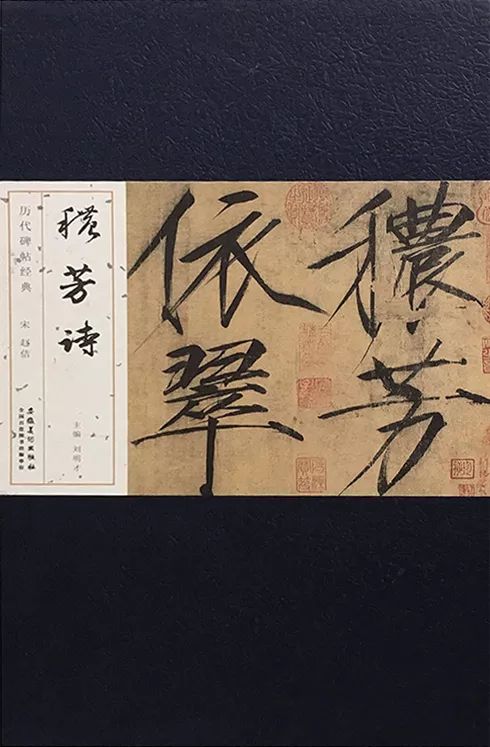 穠芳
依翠
秾芳诗
历代碑帖经典
宋 赵佶
主编 刘明才
安徽美术出版社
全国百佳图书出版单位